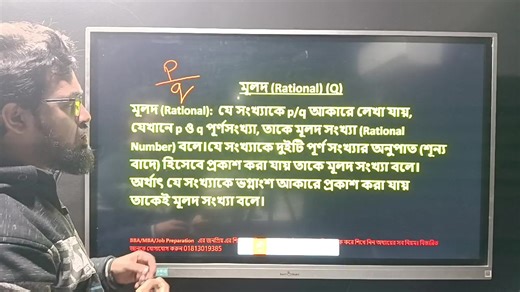 p
q
মূলদ (Rational) (Q)
মূলদ (Rational): যে সংখ্যাকে p/q আকারে লেখা যায়,
যেখানে p ও q পূর্ণসংখ্যা, তাকে মূলদ সংখ্যা (Rational
Number) বলে।যে সংখ্যাকে দুইটি পূর্ণ সংখ্যার অনুপাত (শূন্য
বাদে) হিসেবে প্রকাশ করা যায় তাকে মূলদ সংখ্যা বলে।
অর্থাৎ যে সংখ্যাকে ভগ্নাংশ আকারে প্রকাশ করা যায়
তাকেই মূলদ সংখ্যা বলে।
BBA/MBA/Job Preparation এর জন্যই এর করে শিখে নিন অধ্যায়ের সব নিয়মঃ বিস্তারিত
জানতে যোগাযোগ করুন 01813019385